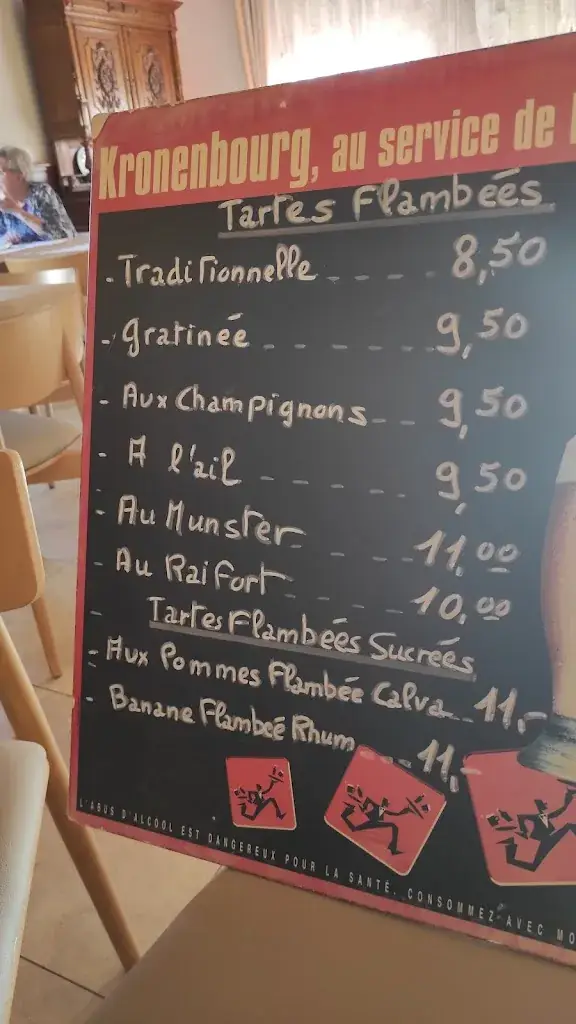 Kronenbourg, au service de
Tartes Flambéés
- Traditionnelle ---- 8,50
- Gratinée ------ 9,50
- Aux Champignons --- 9,50
- A l'ail ------ 9,50
- Au Munster ---- 11,00
- Au Raifort ---- 10,00
- Tartes Flambéés Sucréés
- Aux Pommes Flambée Calva -- 11,-
- Banane Flambeé Rhum --- 11,-
L'ABUS D'ALCOOL EST DANGEREUX POUR LA SANTÉ. CONSOMMEZ AVEC MO